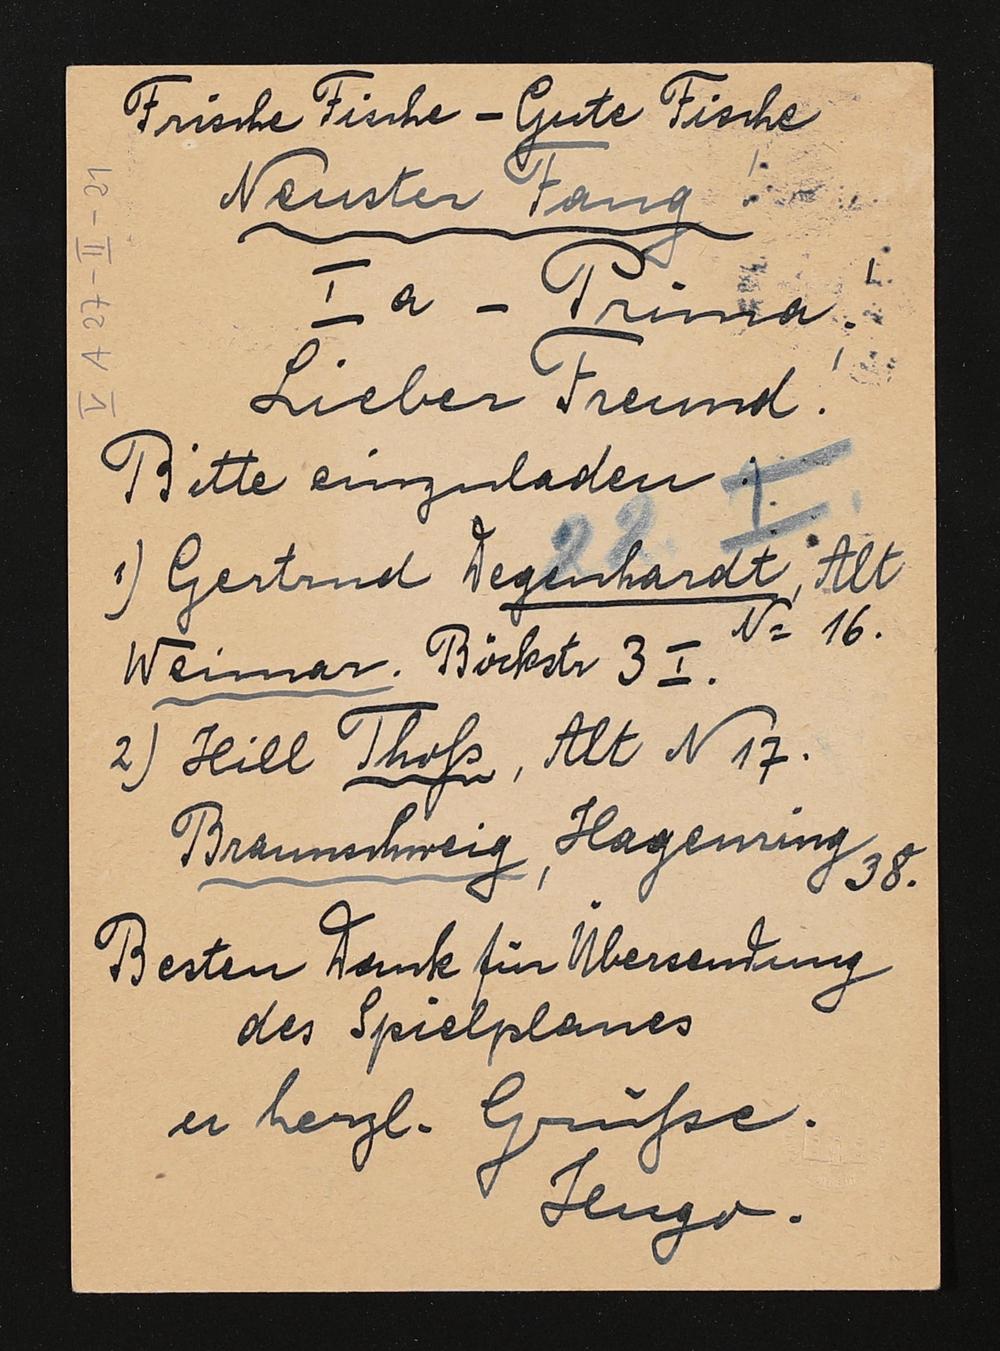 Frische Fische – Gute Fische
Neuster Fang!
Ia – Prima!
Lieber Freund!
Bitte einzuladen:
22. I.
1) Gertrud Degenhardt, Alt
N= 16.
Weimar. Böckstr 3 I.
2) Hill Thoß, Alt N 17.
Braunschweig, Hagenring 38.
Besten Dank für Übersendung
des Spielplanes
u herzl. Grüße.
Hugo.
V A 27-II-31